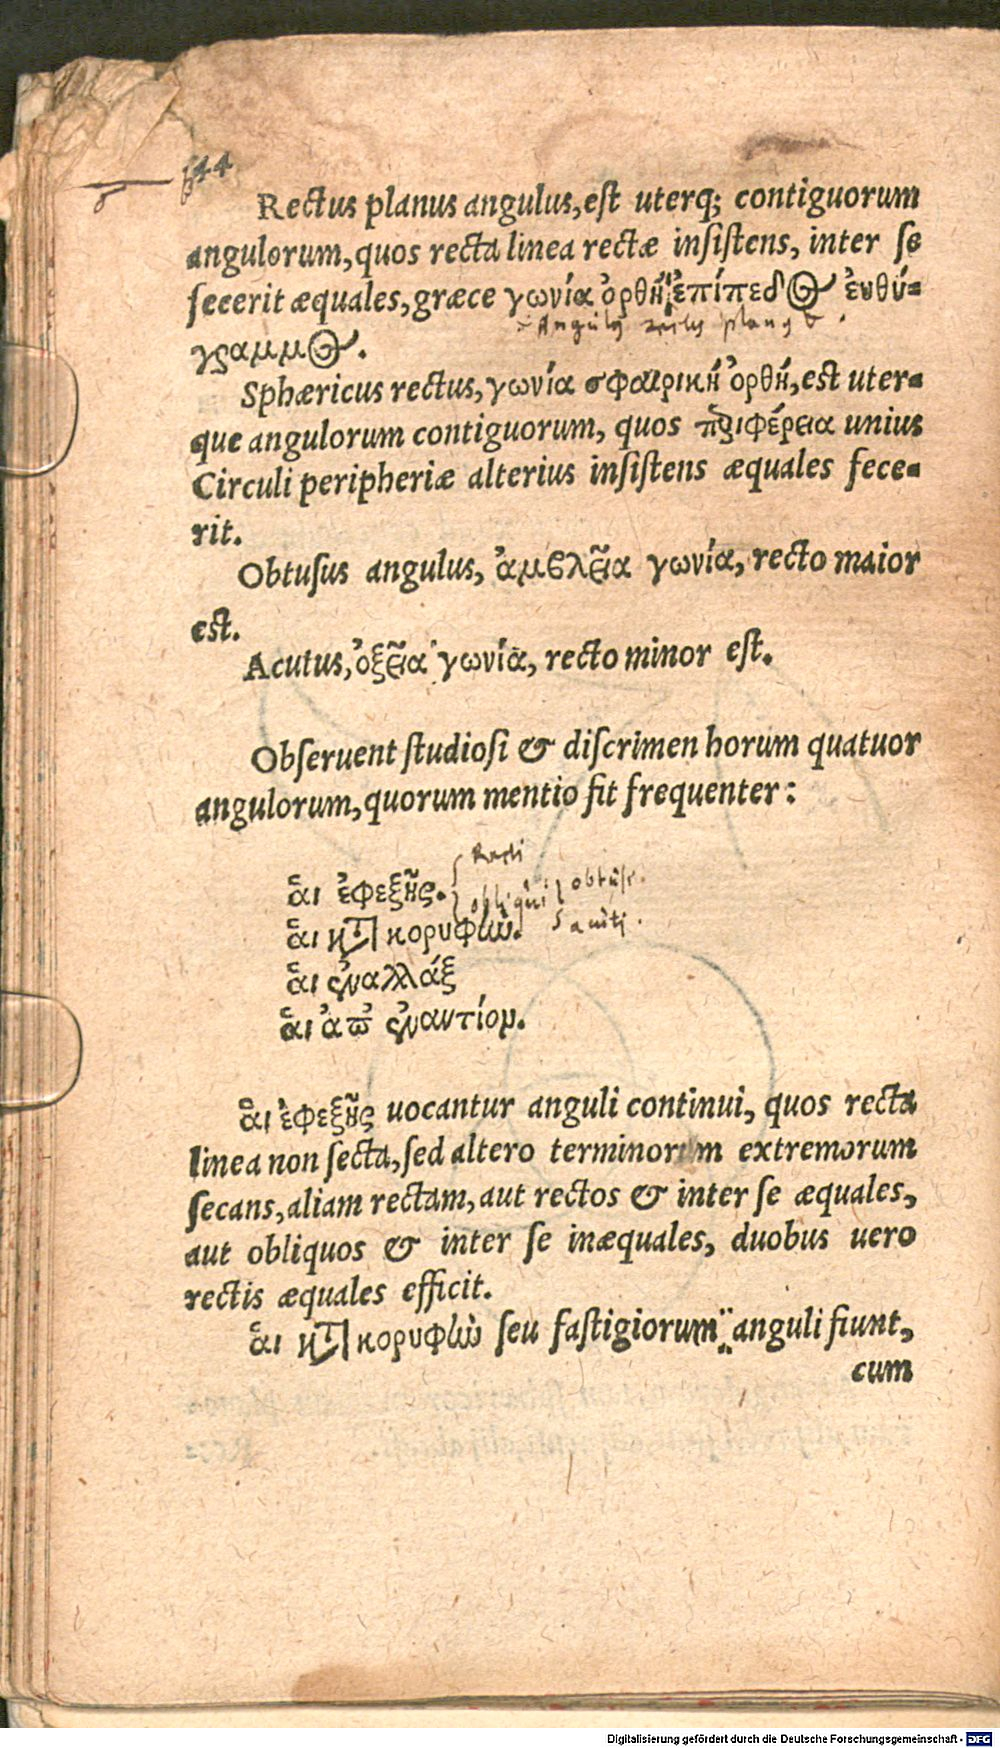 44
Rectus planus angulus, est uterq; contiguorum
angulorum, quos recta linea rectæ insistens, inter se
fecerit æquales, græce γωνία ὀρθὴ ἐπίπεδος ἐυθύ-
Angulus rectus planus
γραμμος.
Sphæricus rectus, γωνία σφαιρικὴ ὀρθή, est uter-
que angulorum contiguorum, quos περιφέρεια unius
Circuli peripheriæ alterius insistens æquales fece-
rit.
Obtusus angulus, ἀμβλεῖα γωνία, recto maior
est.
Acutus, ὀξεῖα γωνία, recto minor est.
Obseruent studiosi & discrimen horum quatuor
angulorum, quorum mentio fit frequenter:
Recti
ἅι ἐφεξῆς.
obliqui obtusi
ἅι κατὰ κορυφὼ.
acuti.
ἅι ἐναλλὰξ
ἅι ἀπ' ἐναντίον.
ἅι ἐφεξῆς uocantur anguli continui, quos recta
linea non secta, sed altero terminorum extremorum
secans, aliam rectam, aut rectos & inter se æquales,
aut obliquos & inter se inæquales, duobus uero
rectis æquales efficit.
ἅι κατὰ κορυφὼ seu fastigiorum anguli fiunt,
cum
Digitalisierung gefördert durch die Deutsche Forschungsgemeinschaft - DFG